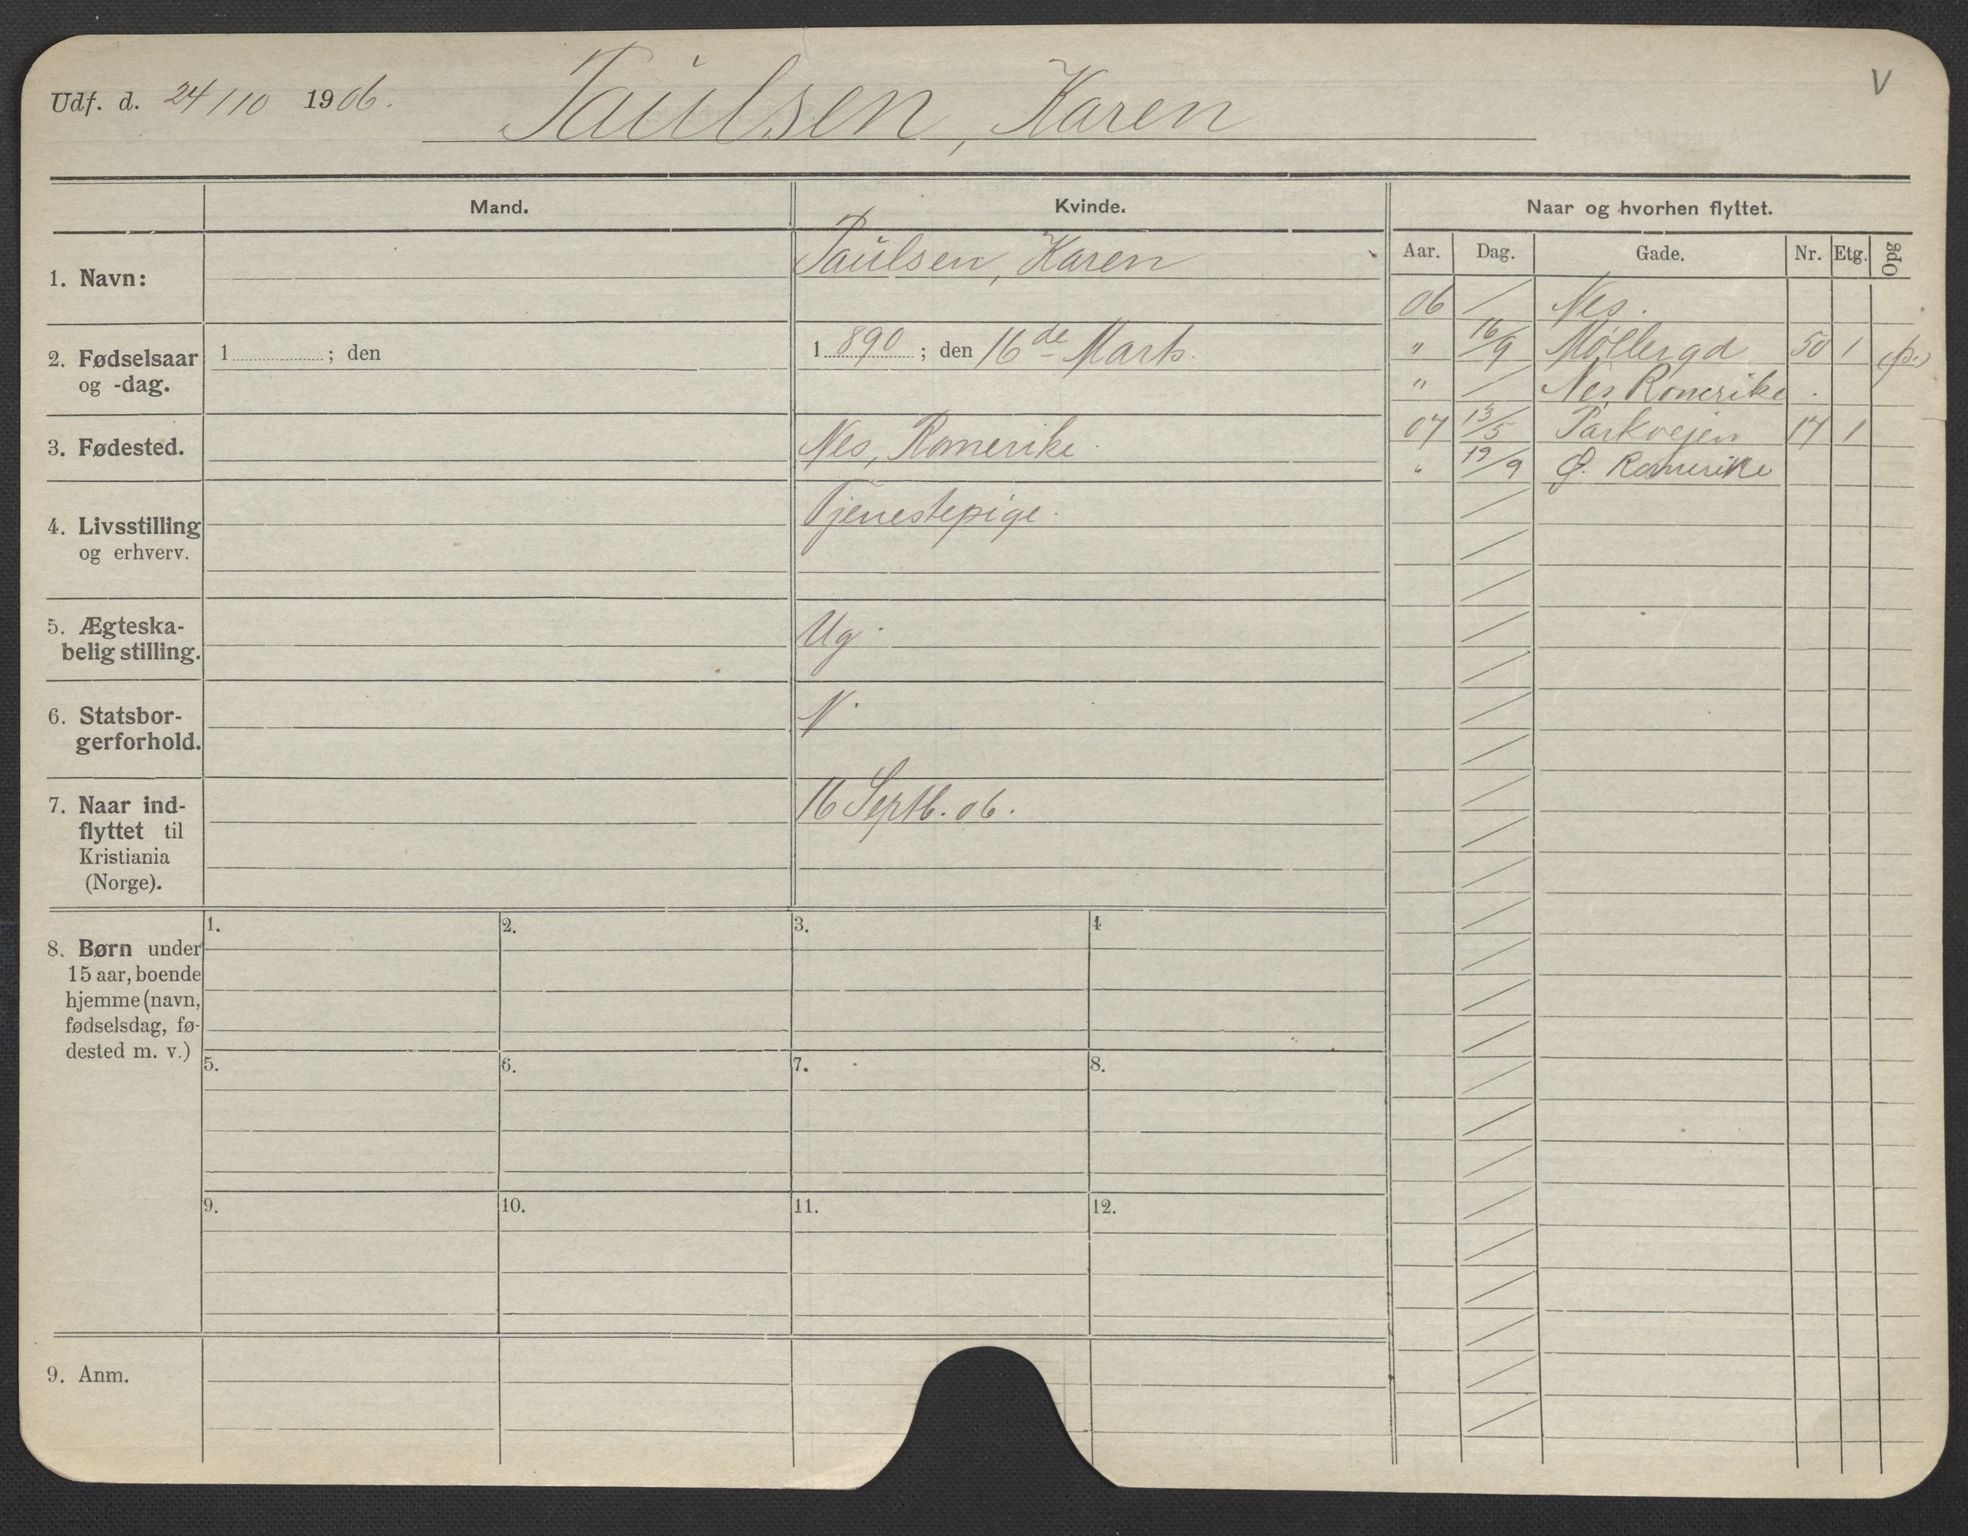 Udf. d. 24/10 1906. Paulsen, Karen V
Mand. Kvinde. Naar og hvorhen flyttet.
Aar. Dag. Gade. Nr. Etg. Opg
1. Navn: Paulsen, Karen
2. Fødselsaar og -dag. 1 ; den 1890 ; den 16de Marts.
3. Fødested. Nes, Romerike.
4. Livsstilling og erhverv. Tjenestepige.
5. Ægteska-
belig stilling. Ug.
6. Statsbor-
gerforhold. N.
7. Naar ind-
flyttet til
Kristiania
(Norge). 16 Septb. 06.
06 / Nes.
" 16/9 Møllergd 50 1 (p.)
" / Nes Romerike.
07 13/5 Parkvejen 17 1
" 19/9 Ø. Romerike
8. Børn under
15 aar, boende
hjemme (navn,
fødselsdag, fø-
dested m. v.)
1. 2. 3. 4
5. 6. 7. 8.
9. 10. 11. 12.
9. Anm.